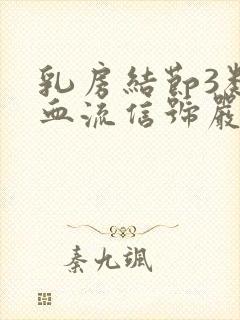 乳房結節3類
血流信號嚴
秦九颯